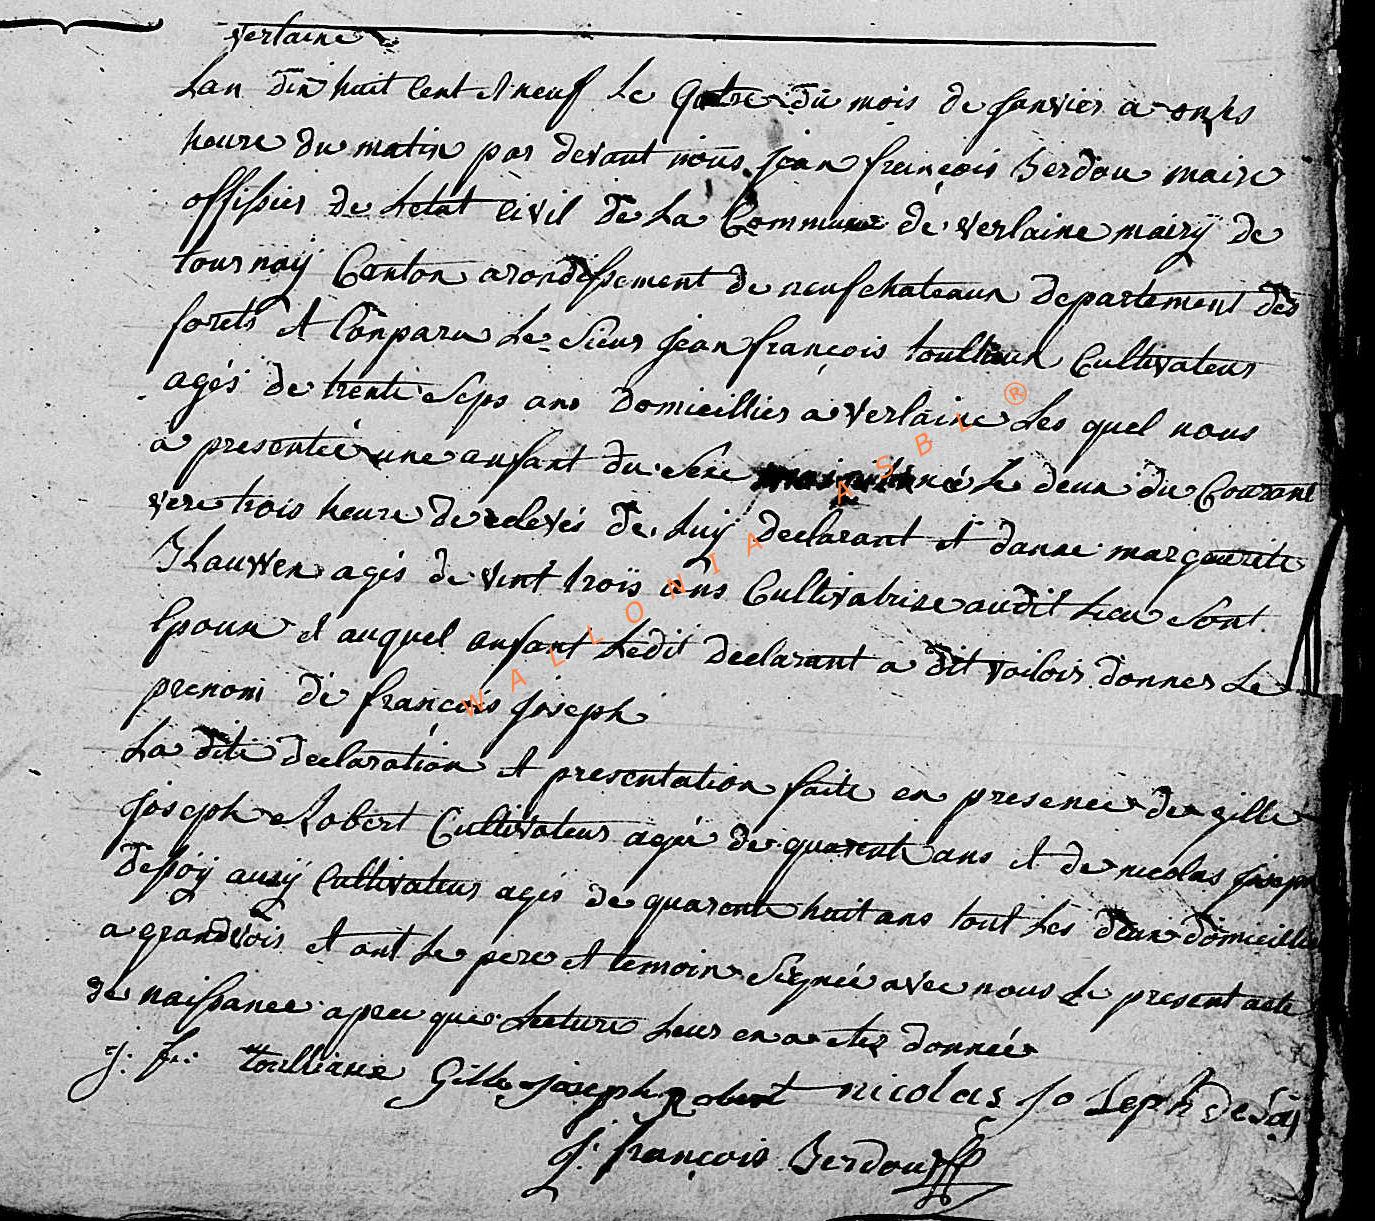 verlaine
Lan dix huit Cent et neuf Le Quatre du mois de Janvier a onhs
heure du matin par devant nous jean françois Berdou maire
offissier de Letat Civil de La Commune de verlaine mairÿ de
tournaÿ Canton arondissement de neufchateaux departement des
forets et Conparu Le Sieur jean françois toulliaux Cultivateur
agés de trente Seps ans domicillier a verlaine Les quel nous
a presentée une anfant du Sexe né Le deux du Courant
vere trois heure de relevés de Luÿ declarant et danne margueritte
agés de vint troïs ans Cultivatrise audit Lieu Sont
Epoux et auquel anfant Ledit declarant a dit voiloir donner Le
prenom de françois joseph
La dite declaration et presentation faite en presence de gille
joseph Robert Cultivateur agée de quarente ans et de nicolas joseph
dessoÿ ausÿ Cultivateur agés de quarente huit ans tout Les deux domicillie
a grandvoir et ont Le pere et temoin Signée avec nous Le present acte
de naissance apree que Lecture Leur en a etez donnée
j. f. toulliaux Gille joseph Robert nicolas Joseph deSoÿ
J: françois Berdou
WALLONIA ASBL ®